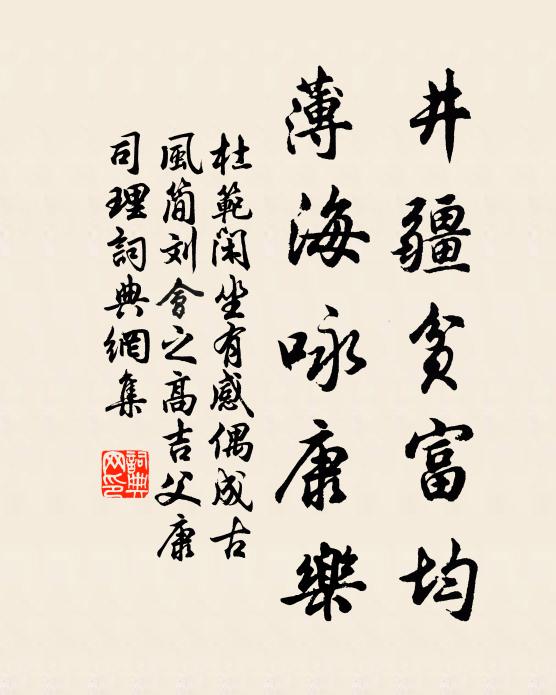 井疆貧富均
薄海咏康樂
杜範閑坐有感偶成古
風簡刘會之高吉父康
司理詞典網集
詞典网印